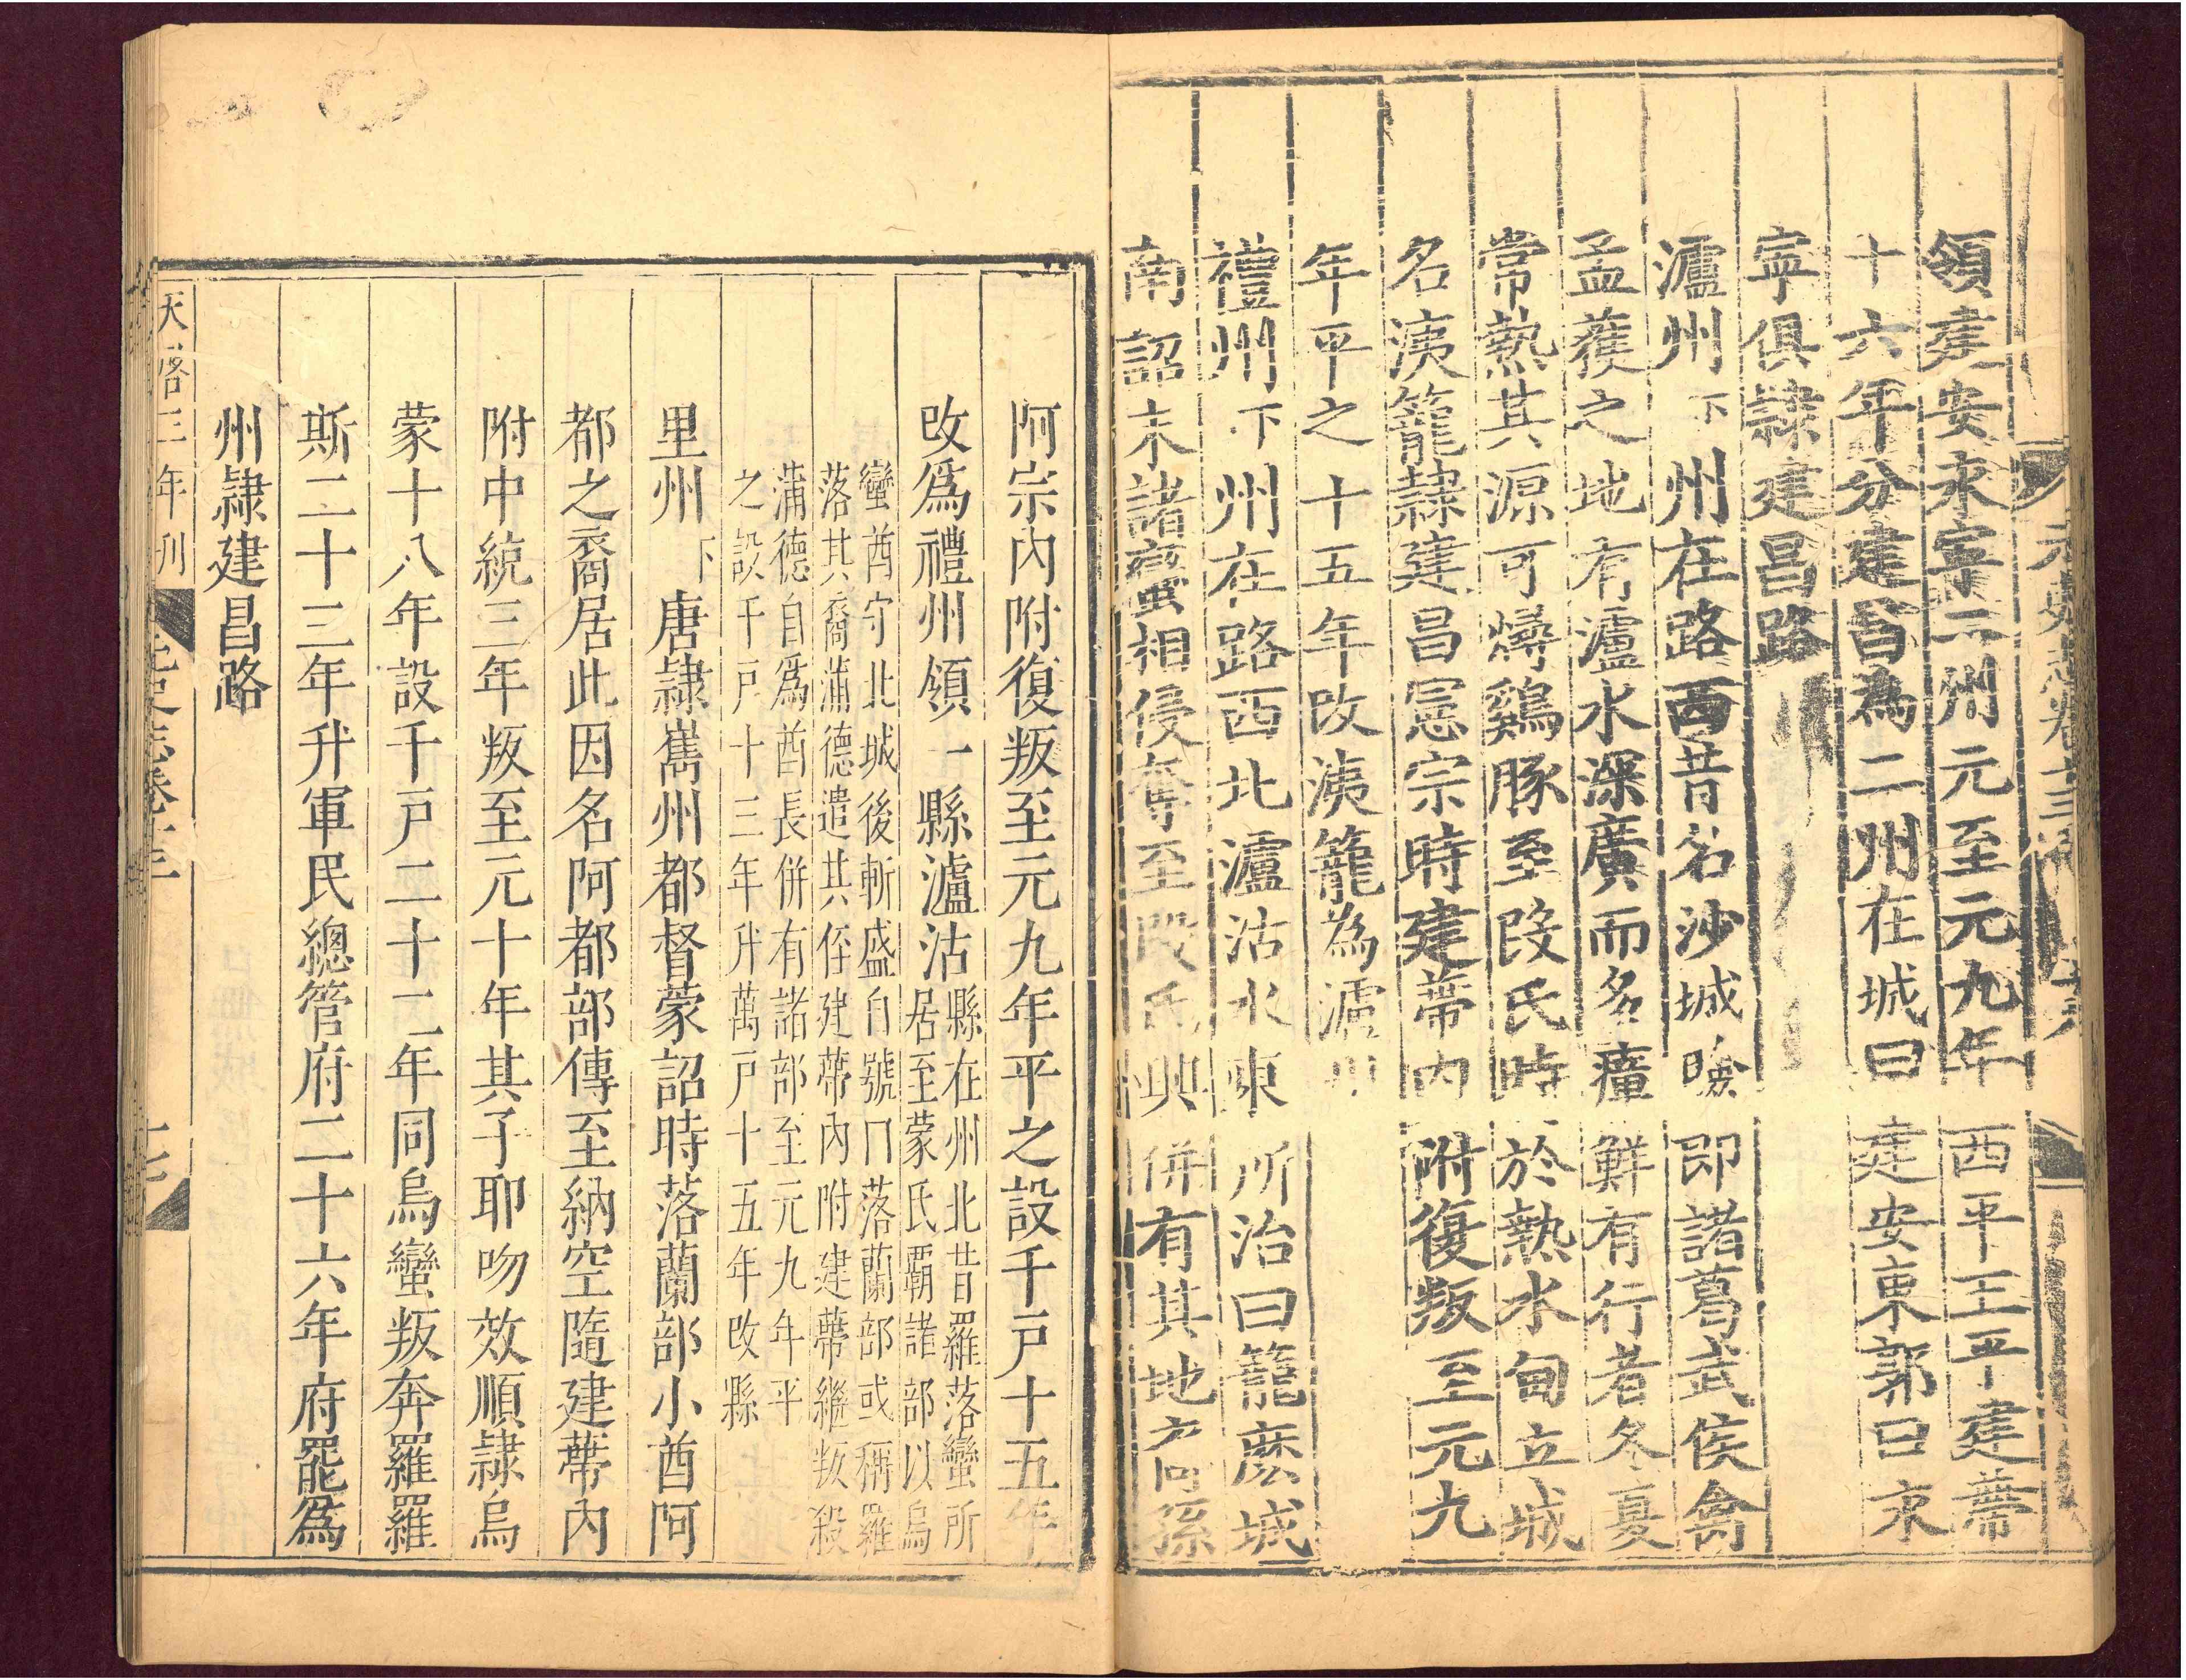 元史志卷十三
領建安永寧二州元至元九年西平王平建蒂
十六年分建昌為二州在城曰建安東郭曰永
寧俱隷建昌路
瀘州下州在路西昔名沙城瞼即諸葛武侯禽
孟獲之地有瀘水深廣而多瘴鮮有行者冬夏
常熱其源可燖鷄豚至段氏時於熱水甸立城
名洟籠隷建昌憲宗時建蒂内附復叛至元九
年平之十五年改洟籠為瀘州
禮州下州在路西北瀘沽水東所治曰籠麽城
南詔末諸蠻相侵奪至段氏興併有其地裔孫
阿宗內附復叛至元九年平之設千戶十五年
改爲禮州領一縣瀘沽
縣在州北昔羅落蠻所
居至蒙氏霸諸部以烏
蠻酋守北城後斬盛自號曰落蘭部或稱羅
落其裔蒲德遣其侄建蒂內附建蒂繼叛殺
蒲德自爲酋長併有諸部至元九年平
之設千戶十三年升萬戶十五年改縣
里州下唐隷嶲州都督蒙詔時落蘭部小酋阿
都之裔居此因名阿都部傳至納空隨建蒂內
附中統三年叛至元十年其子耶吻效順隷烏
蒙十八年設千戶二十二年同烏蠻叛奔羅羅
斯二十三年升軍民總管府二十六年府罷爲
州隷建昌路
天啓三年刊
元史志卷十三